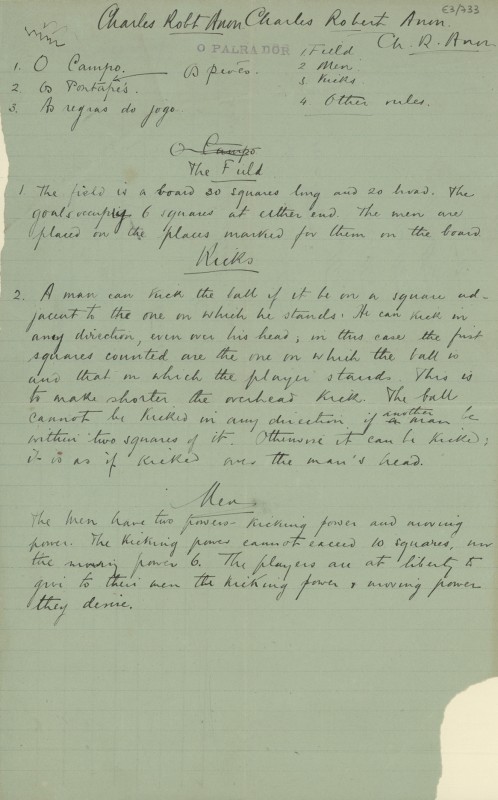 E3/733
Charles Robt Anon Charles Robert Anon.
Ch. R. Anon
O PALRADOR
1. O Campo.
Os peões.
2. Os Pontapés.
3. As regras do jogo.
1 Field
2 Men
3 Kicks
4 Other rules.
O Campo
The Field
1. The field is a board 30 squares long and 20 broad. The
goals occupy 6 squares at either end. The men are
placed on the places marked for them on the board
Kicks
2. A man can kick the ball if it be on a square ad-
jacent to the one on which he stands. He can kick in
any direction, even over his head; in this case the first
squares counted are the one on which the ball is
and that on which the player stands. This is
to make shorter the overhead kick. The ball
cannot be kicked in any direction if another man be
within two squares of it. Otherwise it can be kicked;
it is as if kicked over the man's head.
Men
The Men have two powers – kicking power and moving
power. The kicking power cannot exceed 10 squares, nor
the moving power 6. The players are at liberty to
give to their men the kicking power & moving power
they desire.